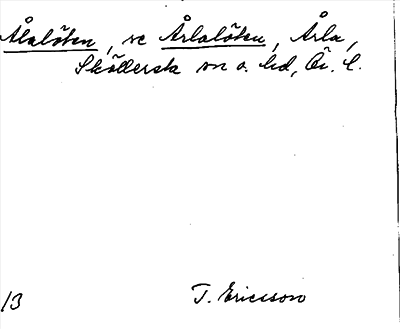 Ålalöten, se Årlalöten, Årla,
Sköllersta sn o. hd, Ör. l.
/3 T. Ericsson